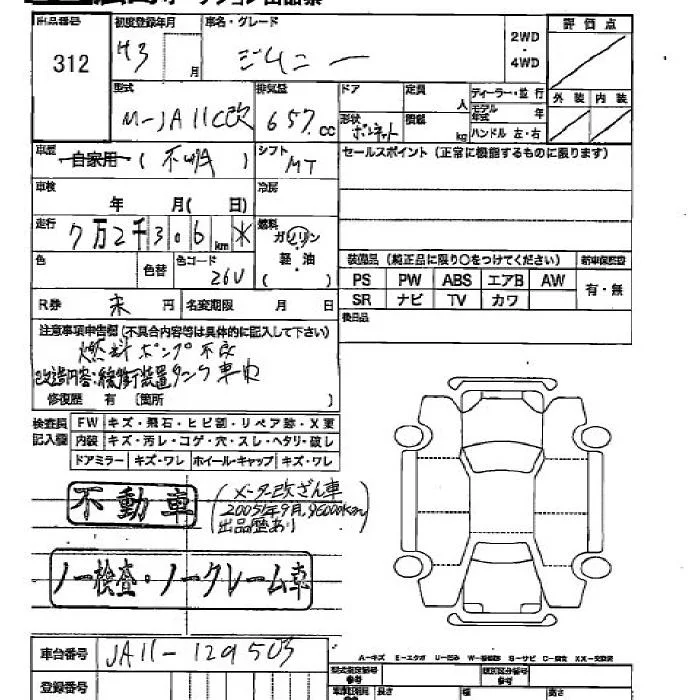 出品番号 初度登録年月 車名・グレード 評価点
312 H3 月 ジムニー 2WD・4WD
型式 排気量 ドア 定員 人 ディーラー・並行 外装 内装
M-JA11C改 657cc 形状 ボンネット 積載 kg モデル年式 年
ハンドル 左・右
車歴 自家用 (不明) シフト MT セールスポイント (正常に機能するものに限ります)
車検 年 月( 日) 冷房
走行 7万2千306km * 燃料 ガソリン
色 色替 色コード 26U 軽・油 ( ・ )
装備品 (純正品に限り○をつけてください) 新車保証書
PS PW ABS エアB AW 有・無
SR ナビ TV カワ
R券 未 円 名変期限 月 日 後日品
注意事項申告欄 (不具合内容等は具体的に記入して下さい)
燃料ポンプ不良
改造内容:緩衝装置タンク車
修復歴 有 〔箇所 〕
検査員記入欄 FW キズ・飛石・ヒビ割・リペア跡・X要
内装 キズ・汚レ・コゲ・穴・スレ・ヘタリ・破レ
ドアミラー キズ・ワレ ホイール・キャップ キズ・ワレ
不動車
(メータ改ざん車
2005年9月,96000km
出品歴あり)
ノー検査・ノークレーム車
A-キズ E-エクボ U-凹み W-補修跡 S-サビ C-腐食 XX-交換済
車台番号 JA11-129503 型式指定番号 参考 類別区分番号 参考
登録番号 長さ 幅 高さ
参考